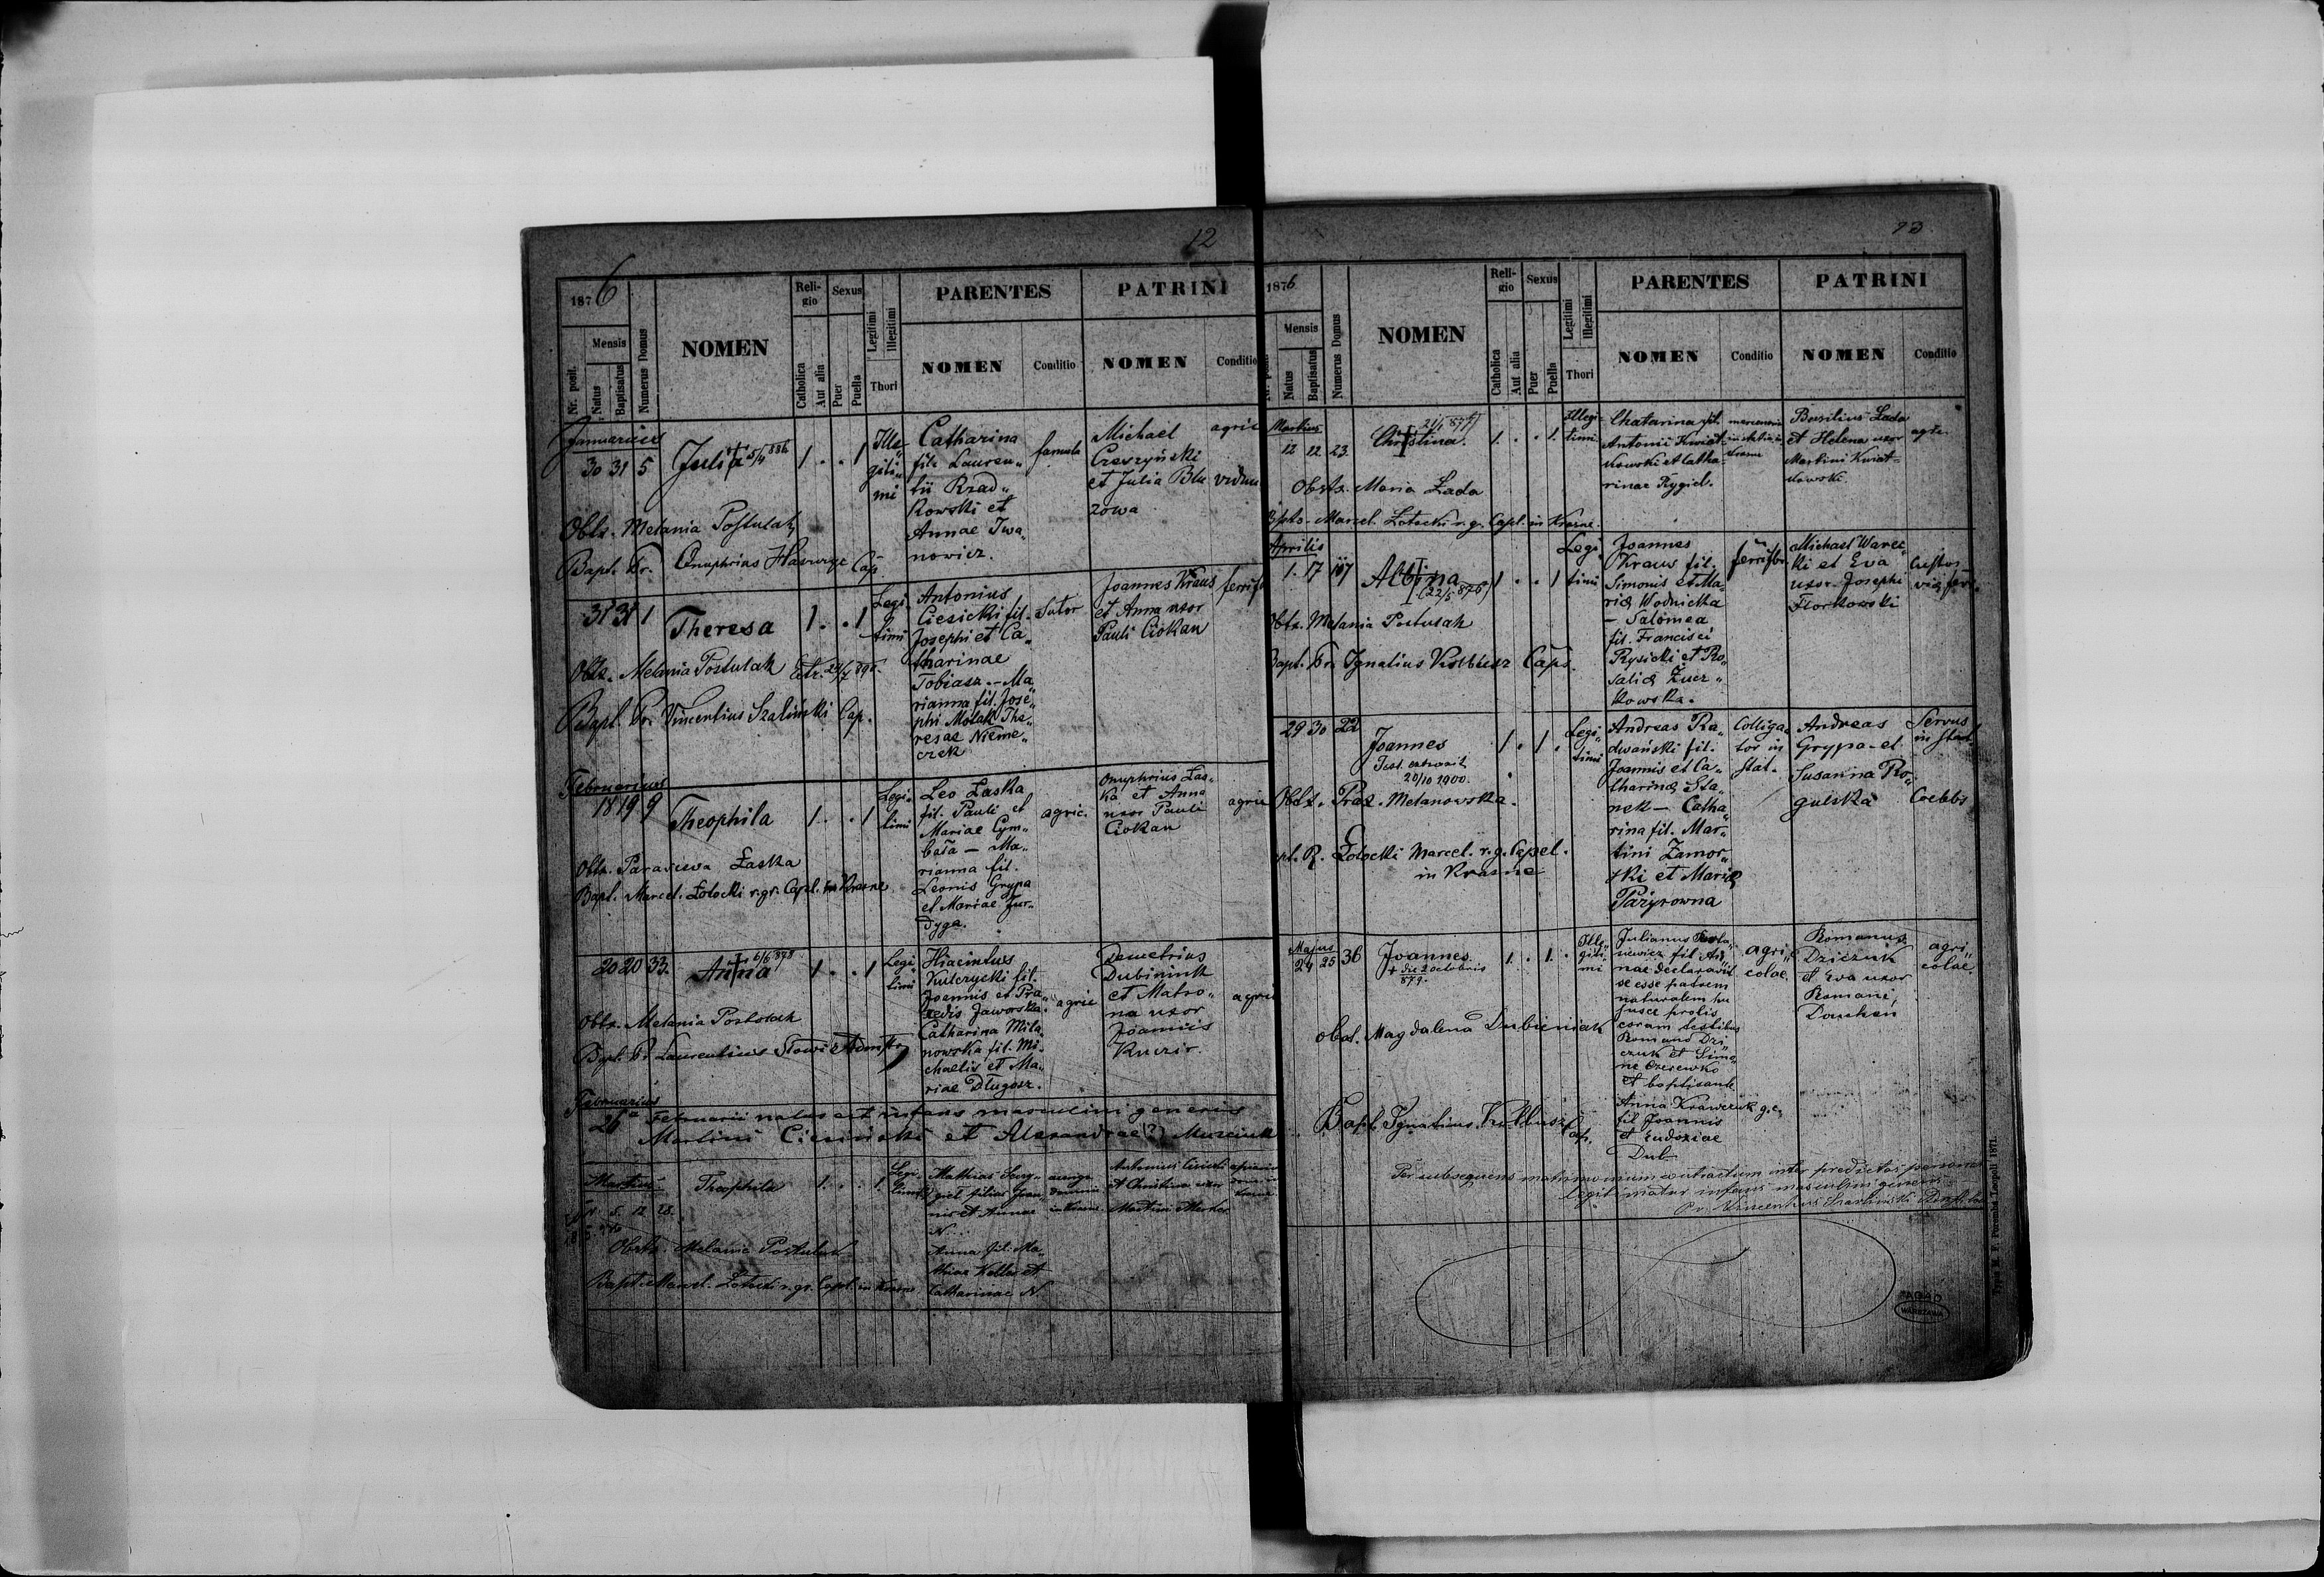 12
1876
Nr. posit.
Mensis
Natus
Baptisatus
Numerus Domus
NOMEN
Religio
Catholica
Aut alia
Sexus
Puer
Puella
Legitimi
Illegitimi
Thori
PARENTES
NOMEN
Conditio
PATRINI
NOMEN
Conditio
Januarius
30 31 5 Julia 5/4 886 1 . . 1
Ille„
giti„
mi
Catharina
fil. Lauren„
tii Rzad„
kowski et
Annae Iwa„
nowicz.
famula
Michael
Czeszyński
et Julia Blu
zowa
agric
vidua
Obtx. Melania Postulak
Bapt. Fr. Onuphrius Cap
31 31 1 Theresa 1 . . 1
Legi
timi
Antonius
Ciesicki fil.
Josephi et Ca„
tharinae
Tobiasz. – Ma„
rianna fil. Jose„
phi Molak The„
resae Nieme„
czek
Sutor
Joannes Kraus
et Anna uxor
Pauli Ciokan
Obtx. Melania Postulak
Bapt. Fr. Vincentius Szaliński Cap.
Februarius
18 19 9 Theophila 1 . . 1
Legi„
timi
Leo Łaska
fil. Pauli et
Mariae Cym„
bała – Ma„
rianna fil.
Leonis Grypa
et Mariae Jur„
dyga.
agric.
Onuphrius Łas„
ka et Anna
uxor Pauli
Ciokan
agric
Obtx. Parascewa Łaska
Bapt. Marcel. Łotocki r. gr. Capl. in Krasne
20 20 33. Anna 6/6 878 1 . . 1
Legi
timi
Hiacintus
Kulczycki fil.
Joannis et Pra„
xedis Jaworska.
Catharina Mila„
nowska fil. Mi„
chaelis et Ma„
riae Długosz.
agric
Demetrius
Dubinink
et Matro„
na uxor
Joannis
Kuzir.
Obtx. Melania Postolak
Bapt. Fr. Laurentius
Februarius
26a Februarii natus est infans masculini generis
Martini et Alexandrae (?)
Martius
5. 12 23. Theophila 1 . . 1
Legi
timi
Mathias
filius Joan„
nis et Annae
N...
Anna fil. Ma„
thiae Keller et
Catharinae N.
Antonius
et Christina uxor
Martini
Obstx. Melania Postulak
Bapt. Marcel. Łotocki r. gr. Capl. in Krasne
93
1876
Nr. posit.
Mensis
Natus
Baptisatus
Numerus Domus
NOMEN
Religio
Catholica
Aut alia
Sexus
Puer
Puella
Legitimi
Illegitimi
Thori
PARENTES
NOMEN
Conditio
PATRINI
NOMEN
Conditio
Martius
12 22 23. Christina. 1. . . 1.
Illegi
timi
Chatarina fil.
Antonii Kwiat
kowski et Catha„
rinae Rygiel.
Basilius Łada
et Helena uxor
Martini Kwiat„
kowski.
agr.
Obstx. Maria Łada
Bpts. Marcel. Łotocki r. g. Capl. in Krasne.
Aprilis
1. 17 107 Albina (22/5 876) 1 . . 1
Legi
timi
Joannes
Kraus fil.
Simonis et Ma„
riæ Wodnicka
– Salomea
fil. Francisci
Rysicki et Ro„
saliæ Żucz„
kowska.
Michael Warec„
ki et Eva
uxor Josephi
Florkowski
Custos
viæ fer.
Obtx. Melania Postulak
Bapt. Fr. Ignatius Caps.
29 30 22 Joannes 1 . 1 .
Test. extraxit
20/10 1900.
Legi„
timi
Andreas Ra„
dwański fil.
Joannis et Ca„
tharinæ Sta„
nek – Catha„
rina fil. Mar„
tini Zamor„
ski et Mariæ
Pażyrowna
Colliga„
tor in
stat.
Andreas
Grypa et
Susanna Ro„
gulska
Servus
in stat.
Coebbs
Obtx. Prax. Melanowska.
pt. R. Łotocki Marcel. r. g. Capel.
in Krasne
Majus
24 25 36 Joannes. 1 . 1 .
+ die 2 octobris
879.
Ille„
giti„
mi
Julianus
niewicz fil An„
nae declaravit
se esse patrem
naturalem hu
jusce prolis
coram testibus
Romano Dzi„
czuk et Simo„
ne Czerewko
et baptisante
Anna Krawczuk g. c.
fil Joannis
et Eudoxiae
Dub
agri„
colae.
Romanus
Dziczuk
et Eva uxor
Romani,
Douhan
agri„
colae
obst. Magdalena Dubieniak
Bapt. Ignatius Cap.
Per subsequens matrimonium contractum inter predictas personas
legitimatur infans masculini generis
Fr. Vincentius
Typis K. F. Poremba Leopoli 1871.
AGAD
WARSZAWA